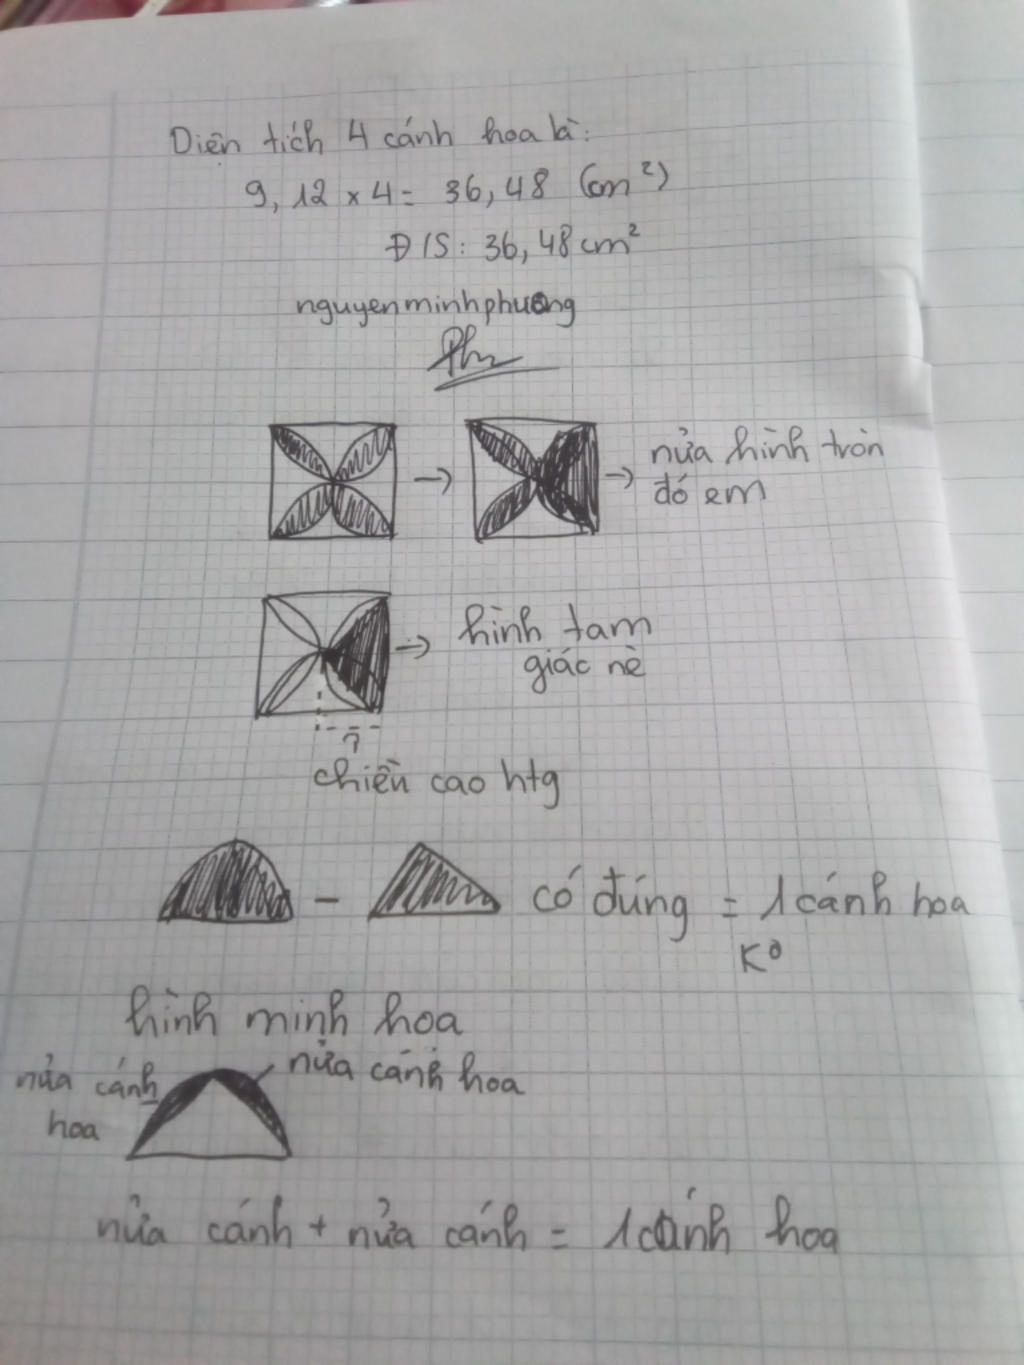 Diện tích 4 cánh hoa là:
9,12 x 4 = 36,48 (cm²)
Đ/S: 36,48 cm²
nguyenminhphuong
Ph
→ → nửa hình tròn
đó em
→ hình tam
giác nè
?
chiều cao htg
- có đúng = 1 cánh hoa
K°
hình minh hoa
nửa cánh hoa
nửa cánh
hoa
nửa cánh + nửa cánh = 1 cánh hoa